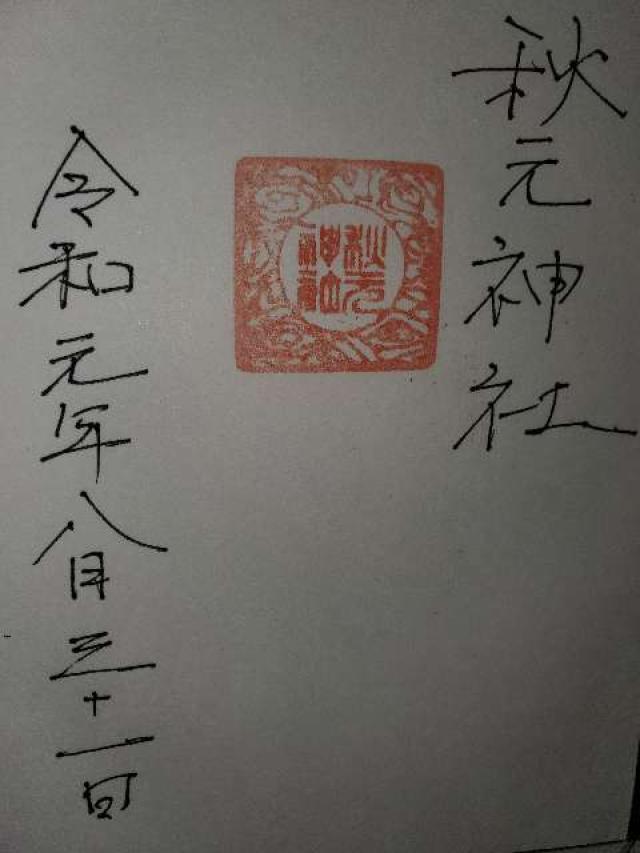 秋元神社
秋元神社
令和元年八月三十一日